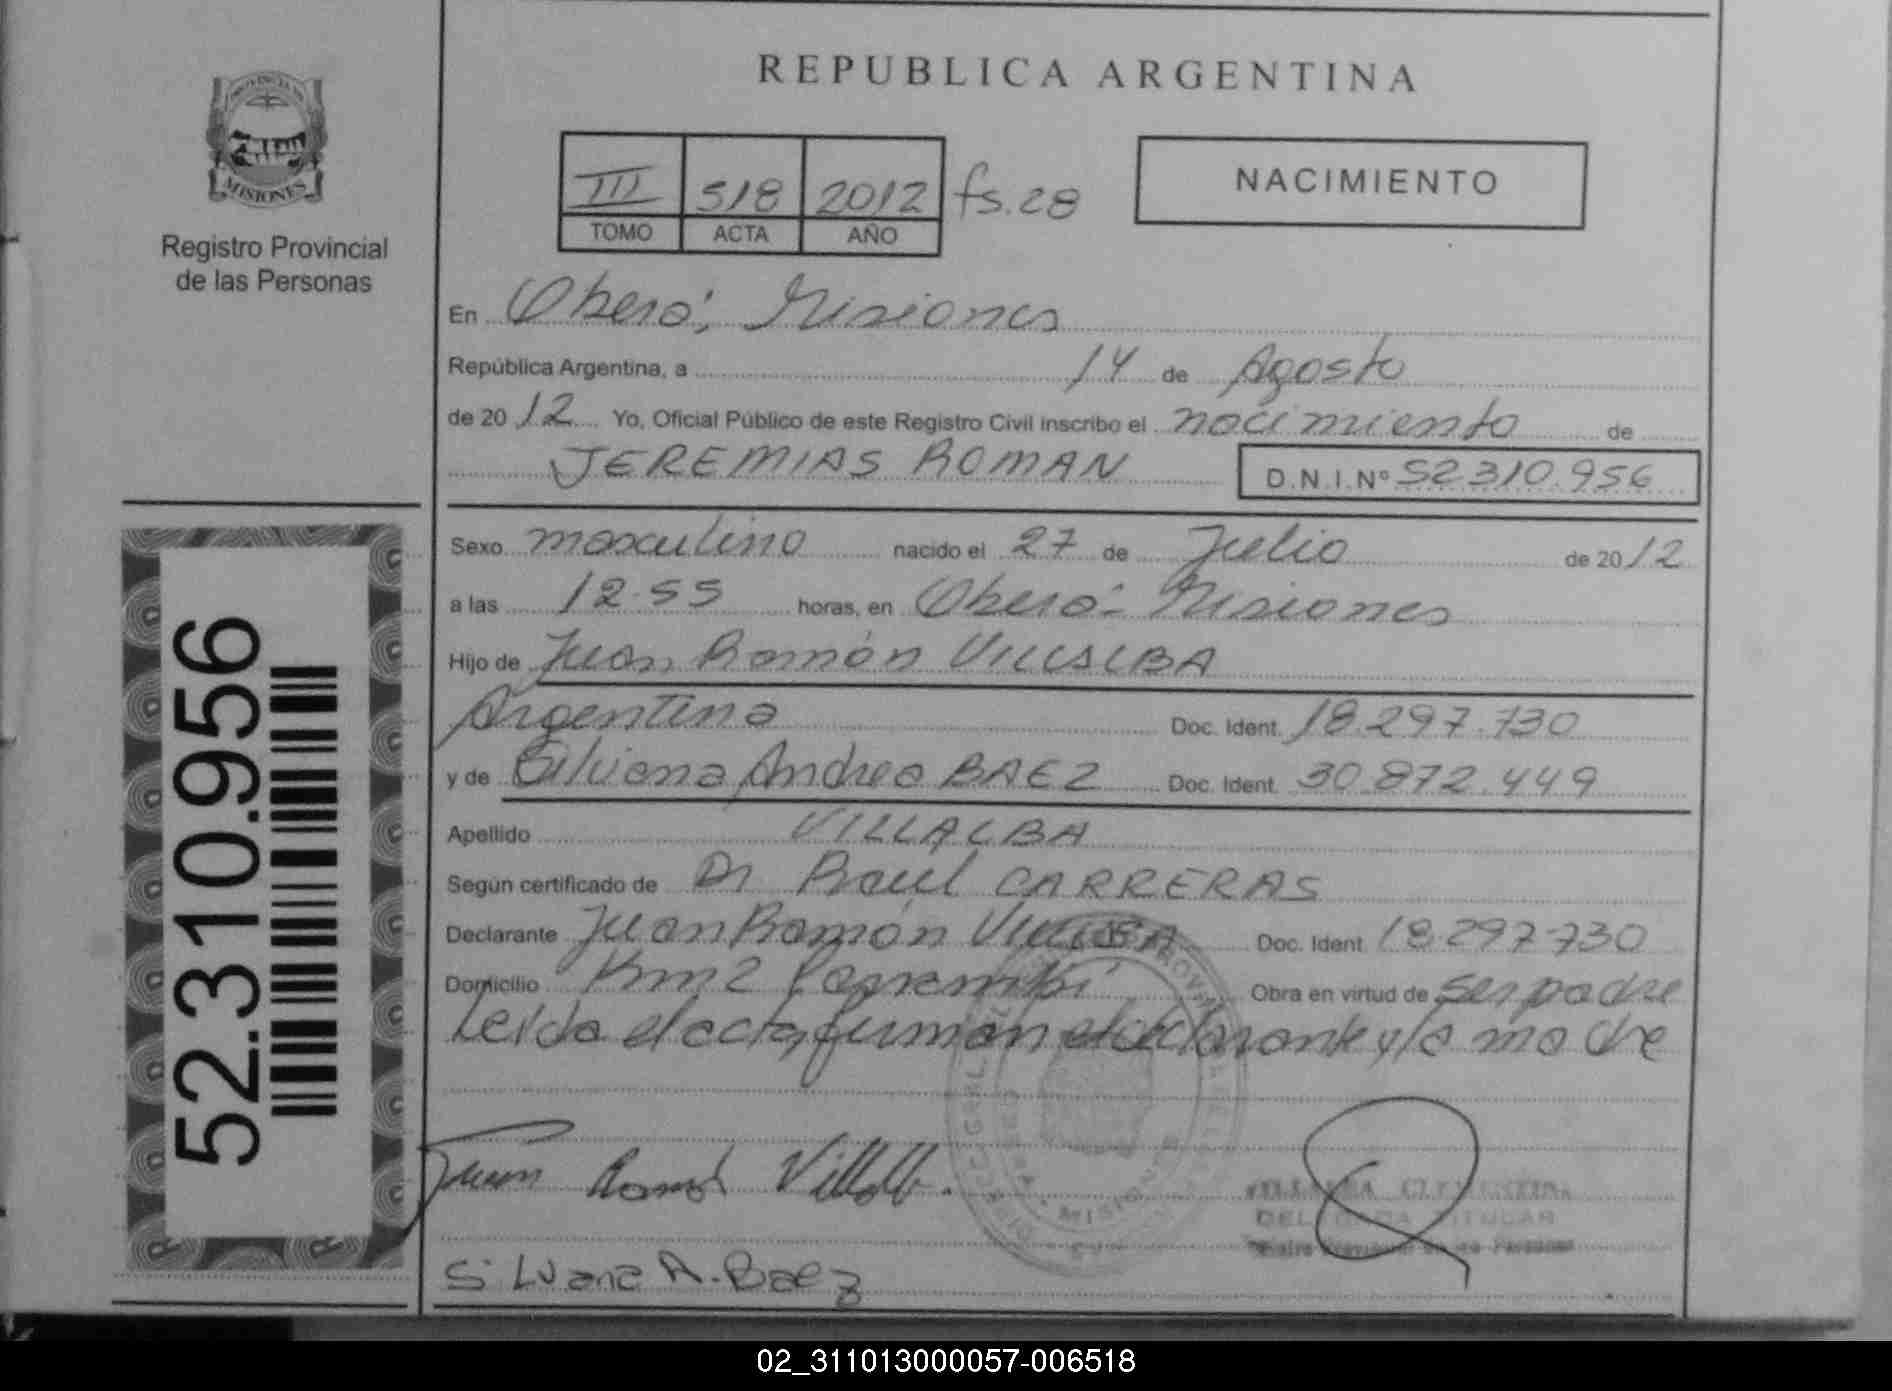 PROVINCIA DE
MISIONES
Registro Provincial
de las Personas
REPUBLICA ARGENTINA
III 518 2012 fs.28
TOMO ACTA AÑO
NACIMIENTO
En Oberá, Misiones
República Argentina, a 14 de Agosto
de 2012 Yo, Oficial Público de este Registro Civil inscribo el nacimiento de
JEREMIAS ROMAN D.N.I.Nº 52.310.956
Sexo masculino nacido el 27 de Julio de 2012
a las 12.55 horas, en Oberá - Misiones
Hijo de Juan Ramón VILLALBA
Argentina Doc. Ident. 18.297.730
y de Silvana Andrea BAEZ Doc. Ident. 30.872.449
Apellido VILLALBA
Según certificado de Dr Raul CARRERAS
Declarante Juan Ramón VILLALBA Doc. Ident 18.297.730
Domicilio Km 2 Obra en virtud de ser padre
Leída el acta, firman el declarante y la madre
Juan Ramón Villalb.
SiLvana A. Baez
DELEGADA TITULAR
52.310.956
02_311013000057-006518